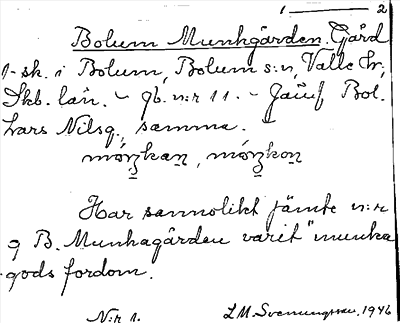 1 — 2
Bolum Munkgården. Gård
1-sk. i Bolum, Bolum s:n, Valle hr,
Skb. län. – gb. n:r 11. – Jämf Bol.
Lars Nilsg., samma.
Har sannolikt jämte n:r
9 B. Munkagården varit "munka
gods fordom.
N:r 1. L M. Svenungsson, 1946